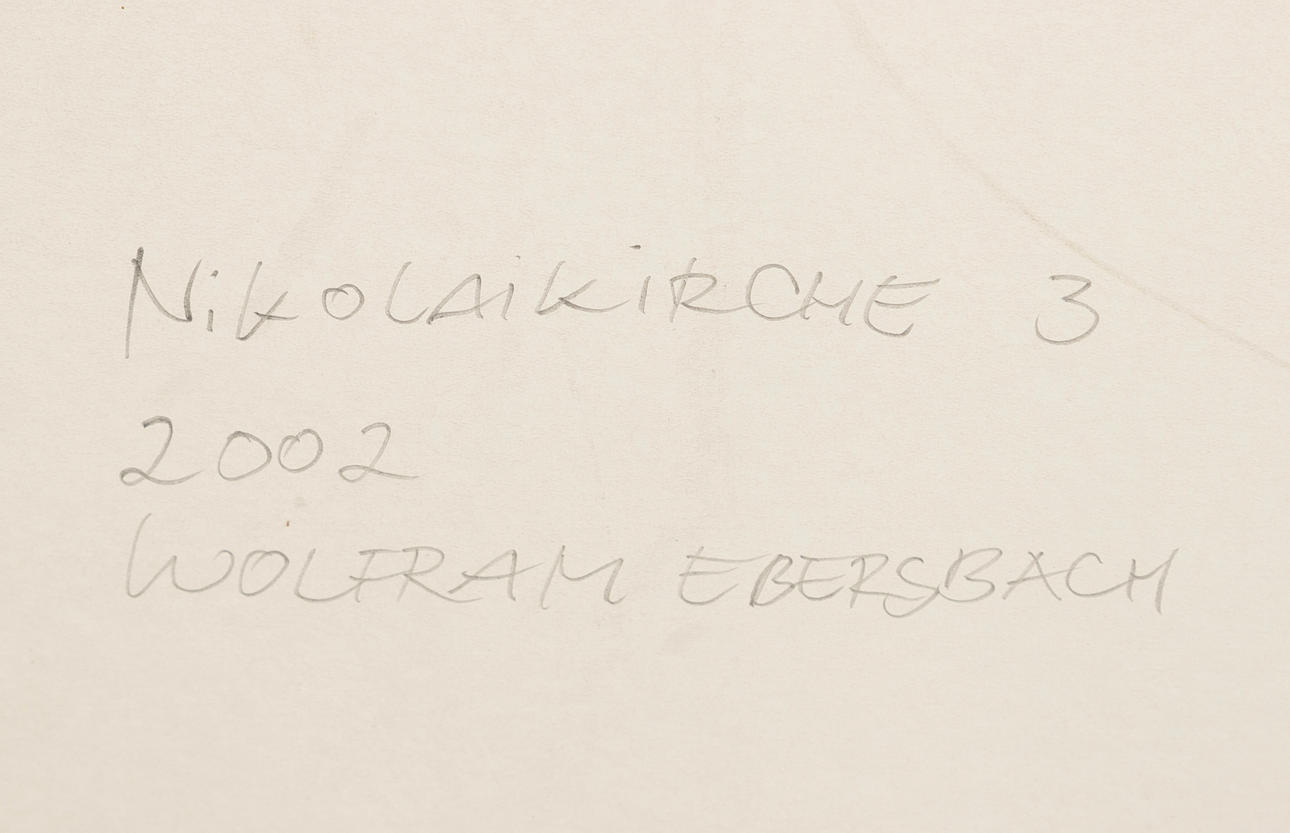 NiKOLAiKiRCHE 3
2002
WOLFRAM EBERSBACH